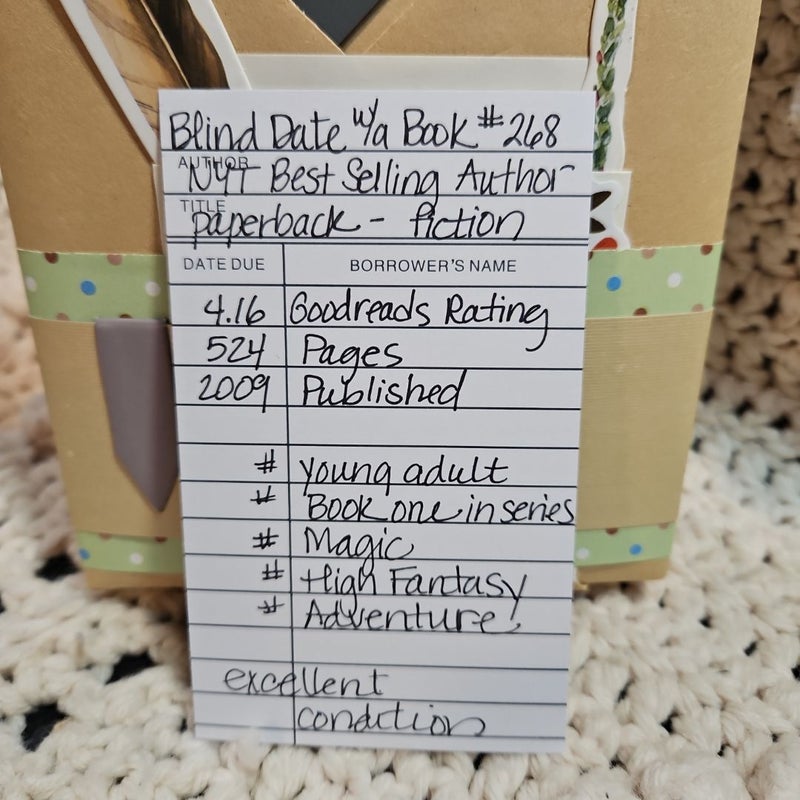 Blind Date w/a Book #268
AUTHOR NYT Best Selling Author
TITLE paperback - fiction
DATE DUE BORROWER'S NAME
4.16 Goodreads Rating
524 Pages
2009 Published
# young adult
# Book one in series
# Magic
# High Fantasy
# Adventure
excellent
condition